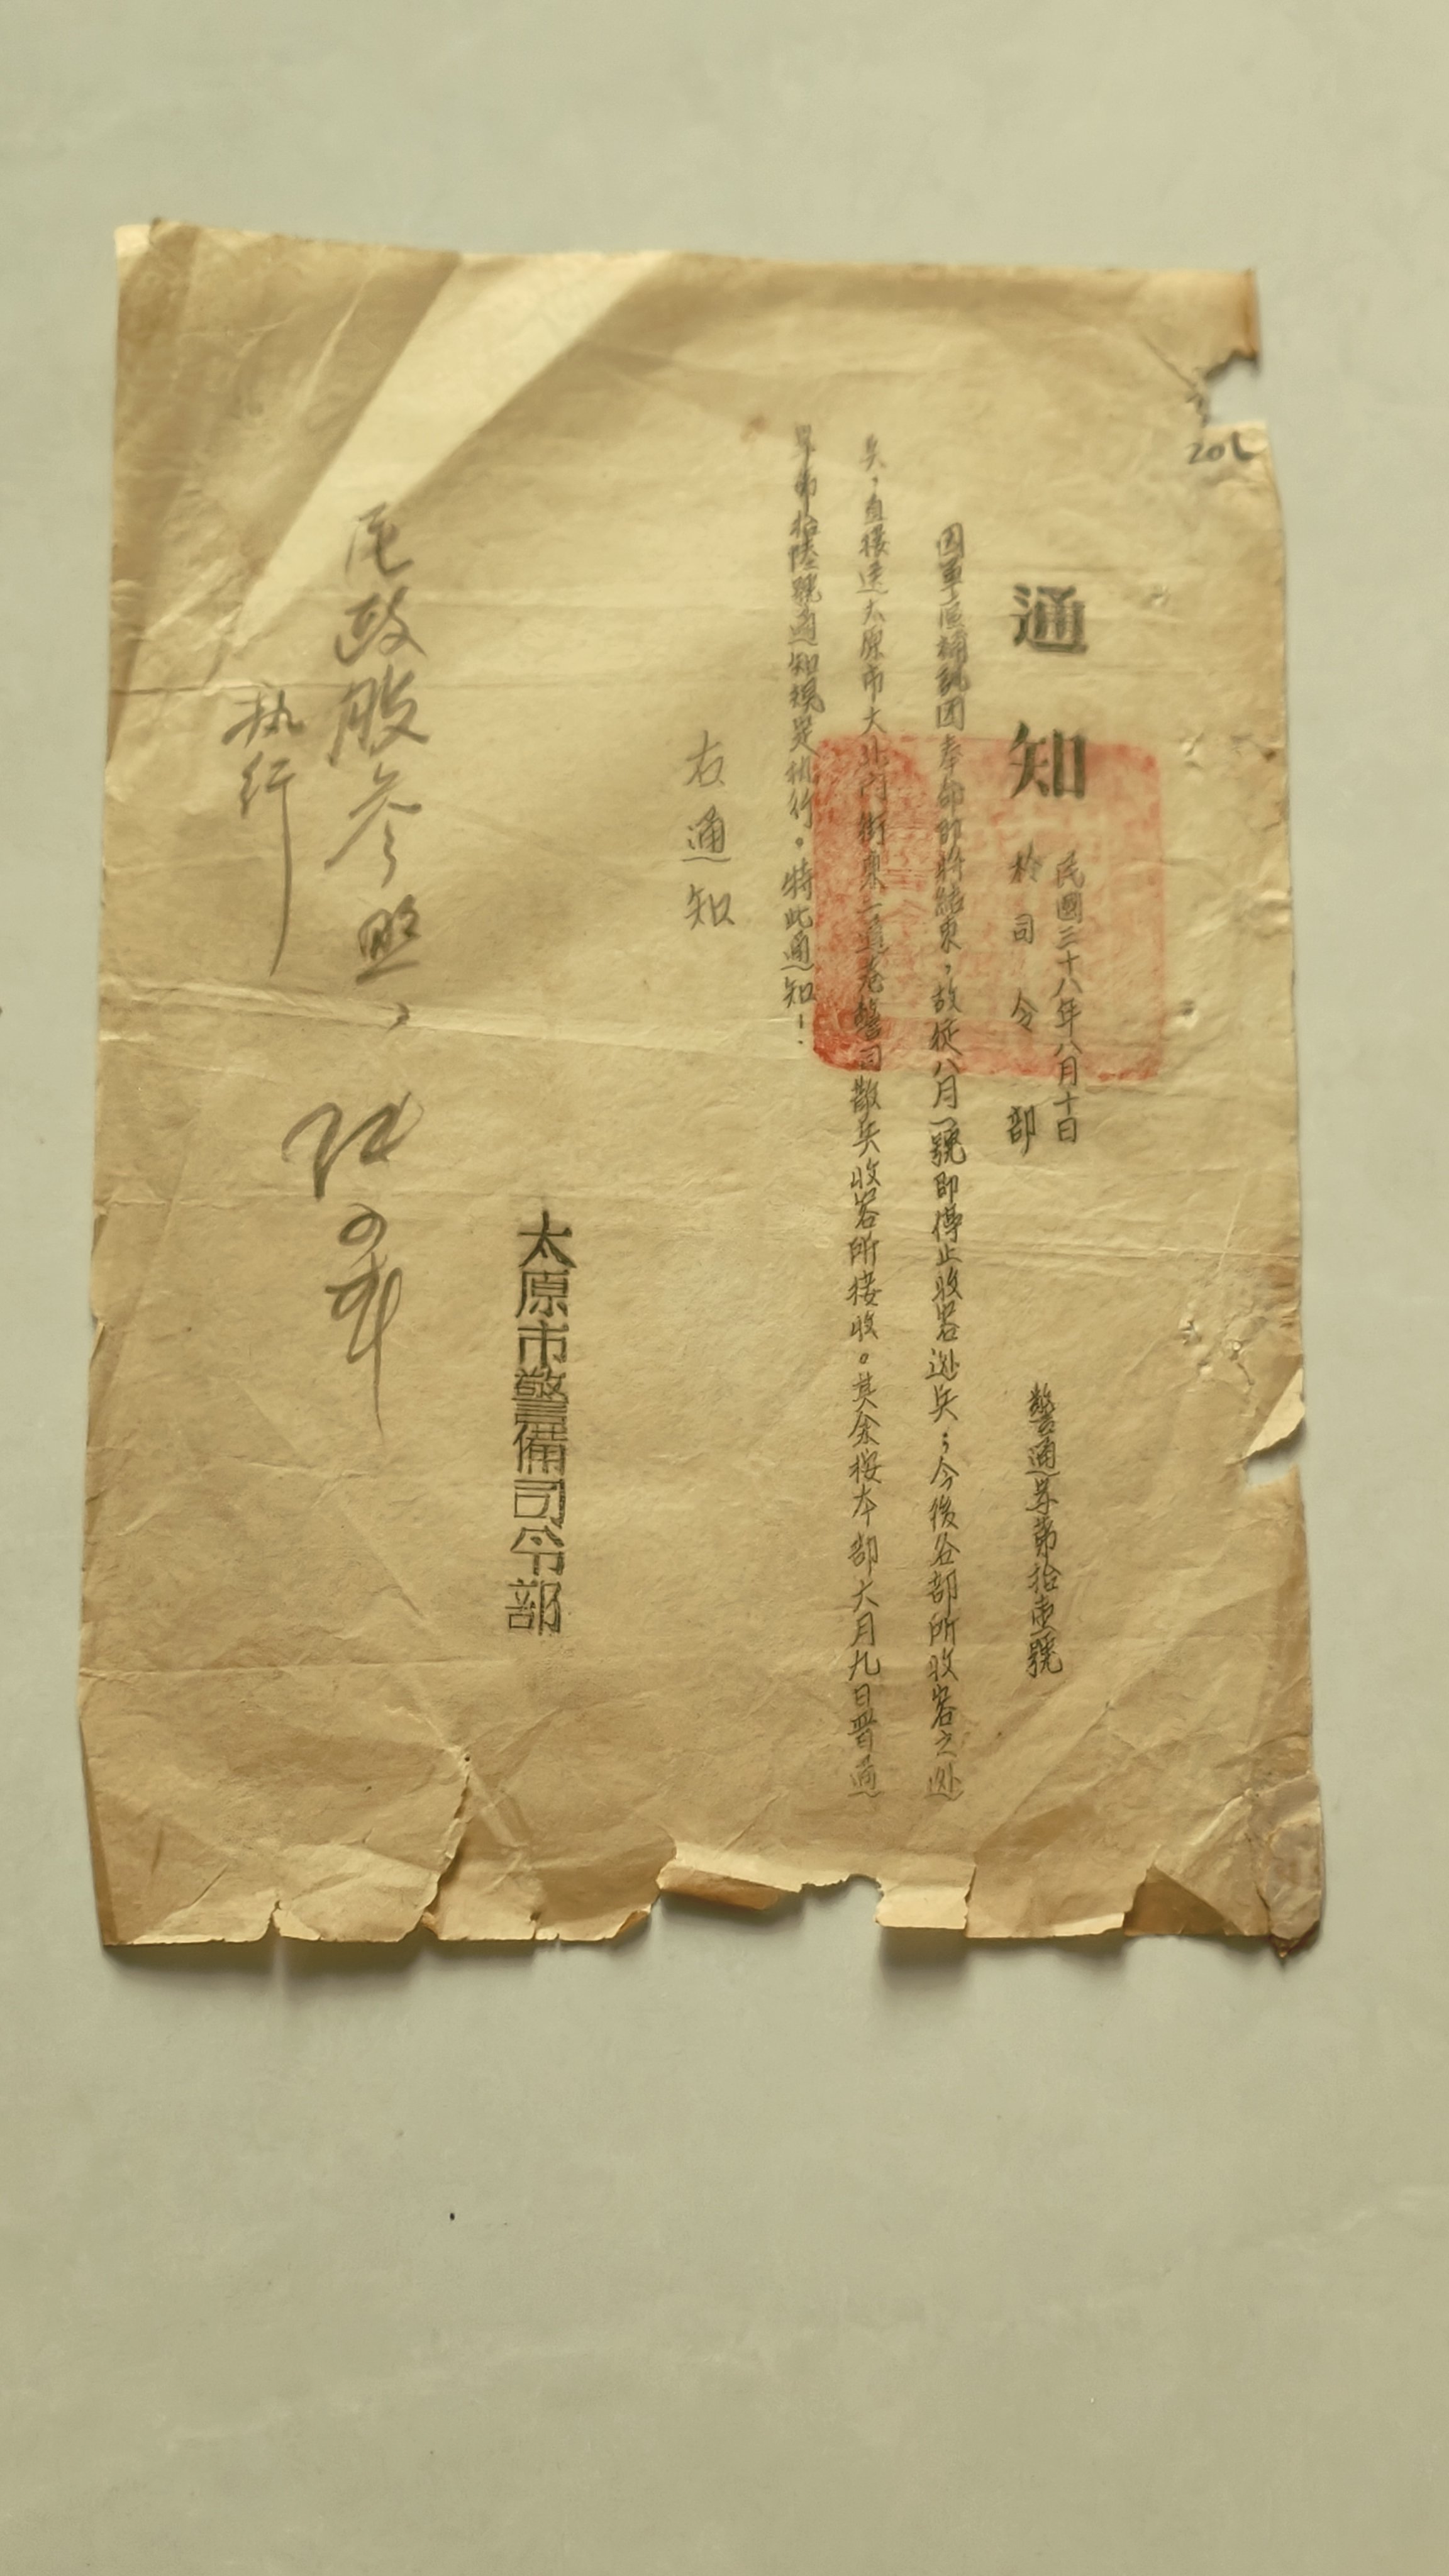 通知
民國三十八年八月十日
於司令部
警通字第拾壹號
因軍區補訓团奉命即將結束,故從八月一號即停止收容逃兵;今後各部所收容之逃
兵,直接送太原市大北门街東二道巷警司散兵收容所接收。其余按本部六月九日晋通
字第拾陸號通知規定执行。特此通知!
右通知
太原市警備司令部
民政股参照、
执行
201